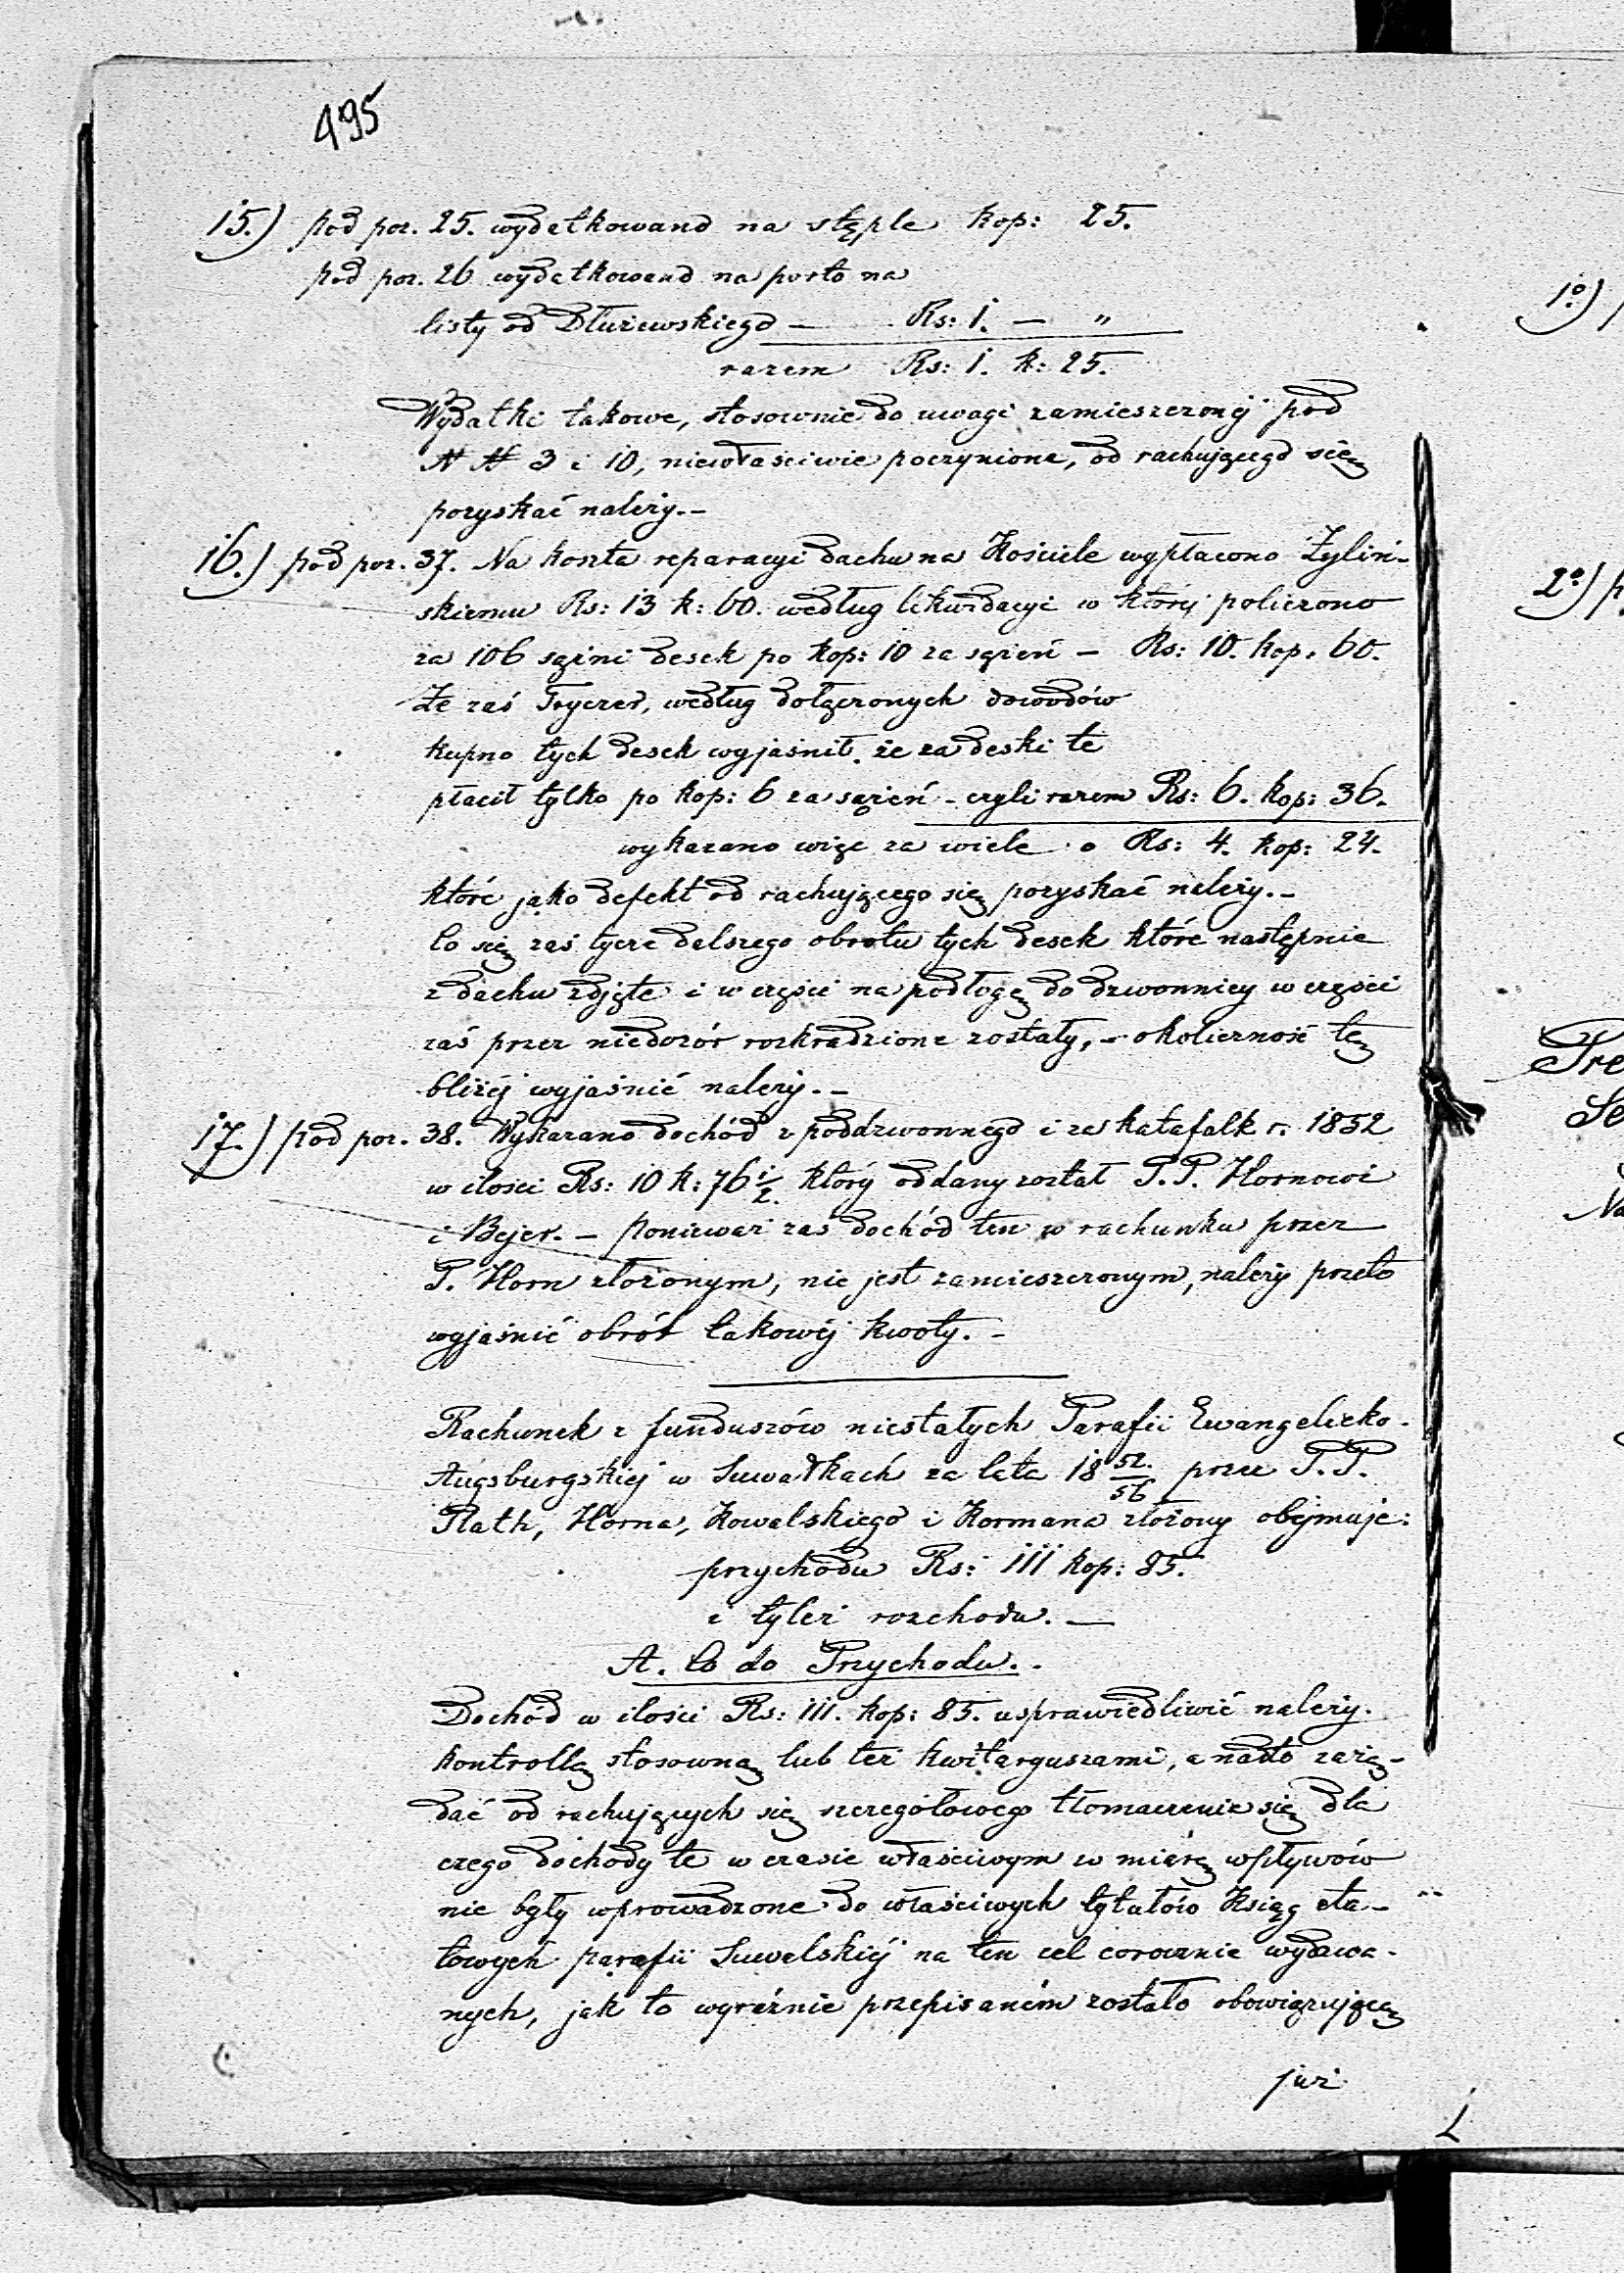 495
15.) pod poz. 25. wydatkowano na stęple kop: 25.
pod poz. 26 wydatkowano na porto na
listy od Dłużewskiego — Rs: 1. — "
razem Rs: 1. k: 25.
Wydatki takowe, stosownie do uwagi zamieszczonéj pod
N N 3 i 10, niewłaściwie poczynione, od rachującego się
pozyskać należy. –
16.) pod poz. 37. Na koszta reparacyi dachu na Kościele wypłacono Żyliń-
skiemu Rs: 13 k: 60. według likwidacyi w któréj policzono
za 106 sążni desek po kop: 10 za sążeń – Rs: 10. kop. 60.
Że zaś Tryczer, według dołączonych dowodów
kupno tych desek wyjaśnił, że za deski te
płacił tylko po kop: 6 za sążeń – czyli razem Rs: 6. kop: 36.
wykazano więc za wiele o Rs: 4. kop: 24.
które jako defekt od rachującego się pozyskać należy. –
Co się zaś tycze dalszego obrotu tych desek które następnie
z dachu zdjęte i w części na podłogę do dzwonnicy w części
zaś przez niedozór rozkradzione zostały, – okoliczność tę
bliżéj wyjaśnić należy. –
17.) pod poz. 38. Wykazano dochód z poddzwonnego i za katafalk r. 1852
w ilości Rs: 10 k: 76 1/2. który oddany został P. P. Hornowi
i Bejer. – ponieważ zaś dochód ten w rachunku przez
P. Horn złożonym, nie jest zamieszczonym, należy przeto
wyjaśnić obrót takowéj kwoty. –
Rachunek z funduszów niestałych Parafii Ewangelicko-
Augsburgskiéj w Suwałkach za lata 18 52/56 przez P. P.
Plath, Horna, Kowalskiego i Kormana złożony obejmuje:
przychodu Rs: 111 kop: 85.
i tyleż rozchodu. —
A. Co do Przychodu. –
Dochód w ilości Rs: 111. kop: 85. usprawiedliwić należy.
kontrollą stosowną lub też kwitarguszami, a nadto zażą-
dać od rachujących się szczegółowego tłomaczenia się dla
czego dochody te w czasie właściwym w miarę wpływów
nie były wprowadzone do właściwych tytułów Ksiąg eta-
towych parafii Suwalskiéj na ten cel corocznie wydawa-
nych, jak to wyraźnie przepisaném zostało obowiązującą
już
1o)
2o)